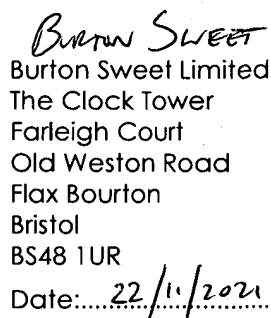 BURTON SWEET
Burton Sweet Limited
The Clock Tower
Farleigh Court
Old Weston Road
Flax Bourton
Bristol
BS48 1UR
Date:.....22/11/2021